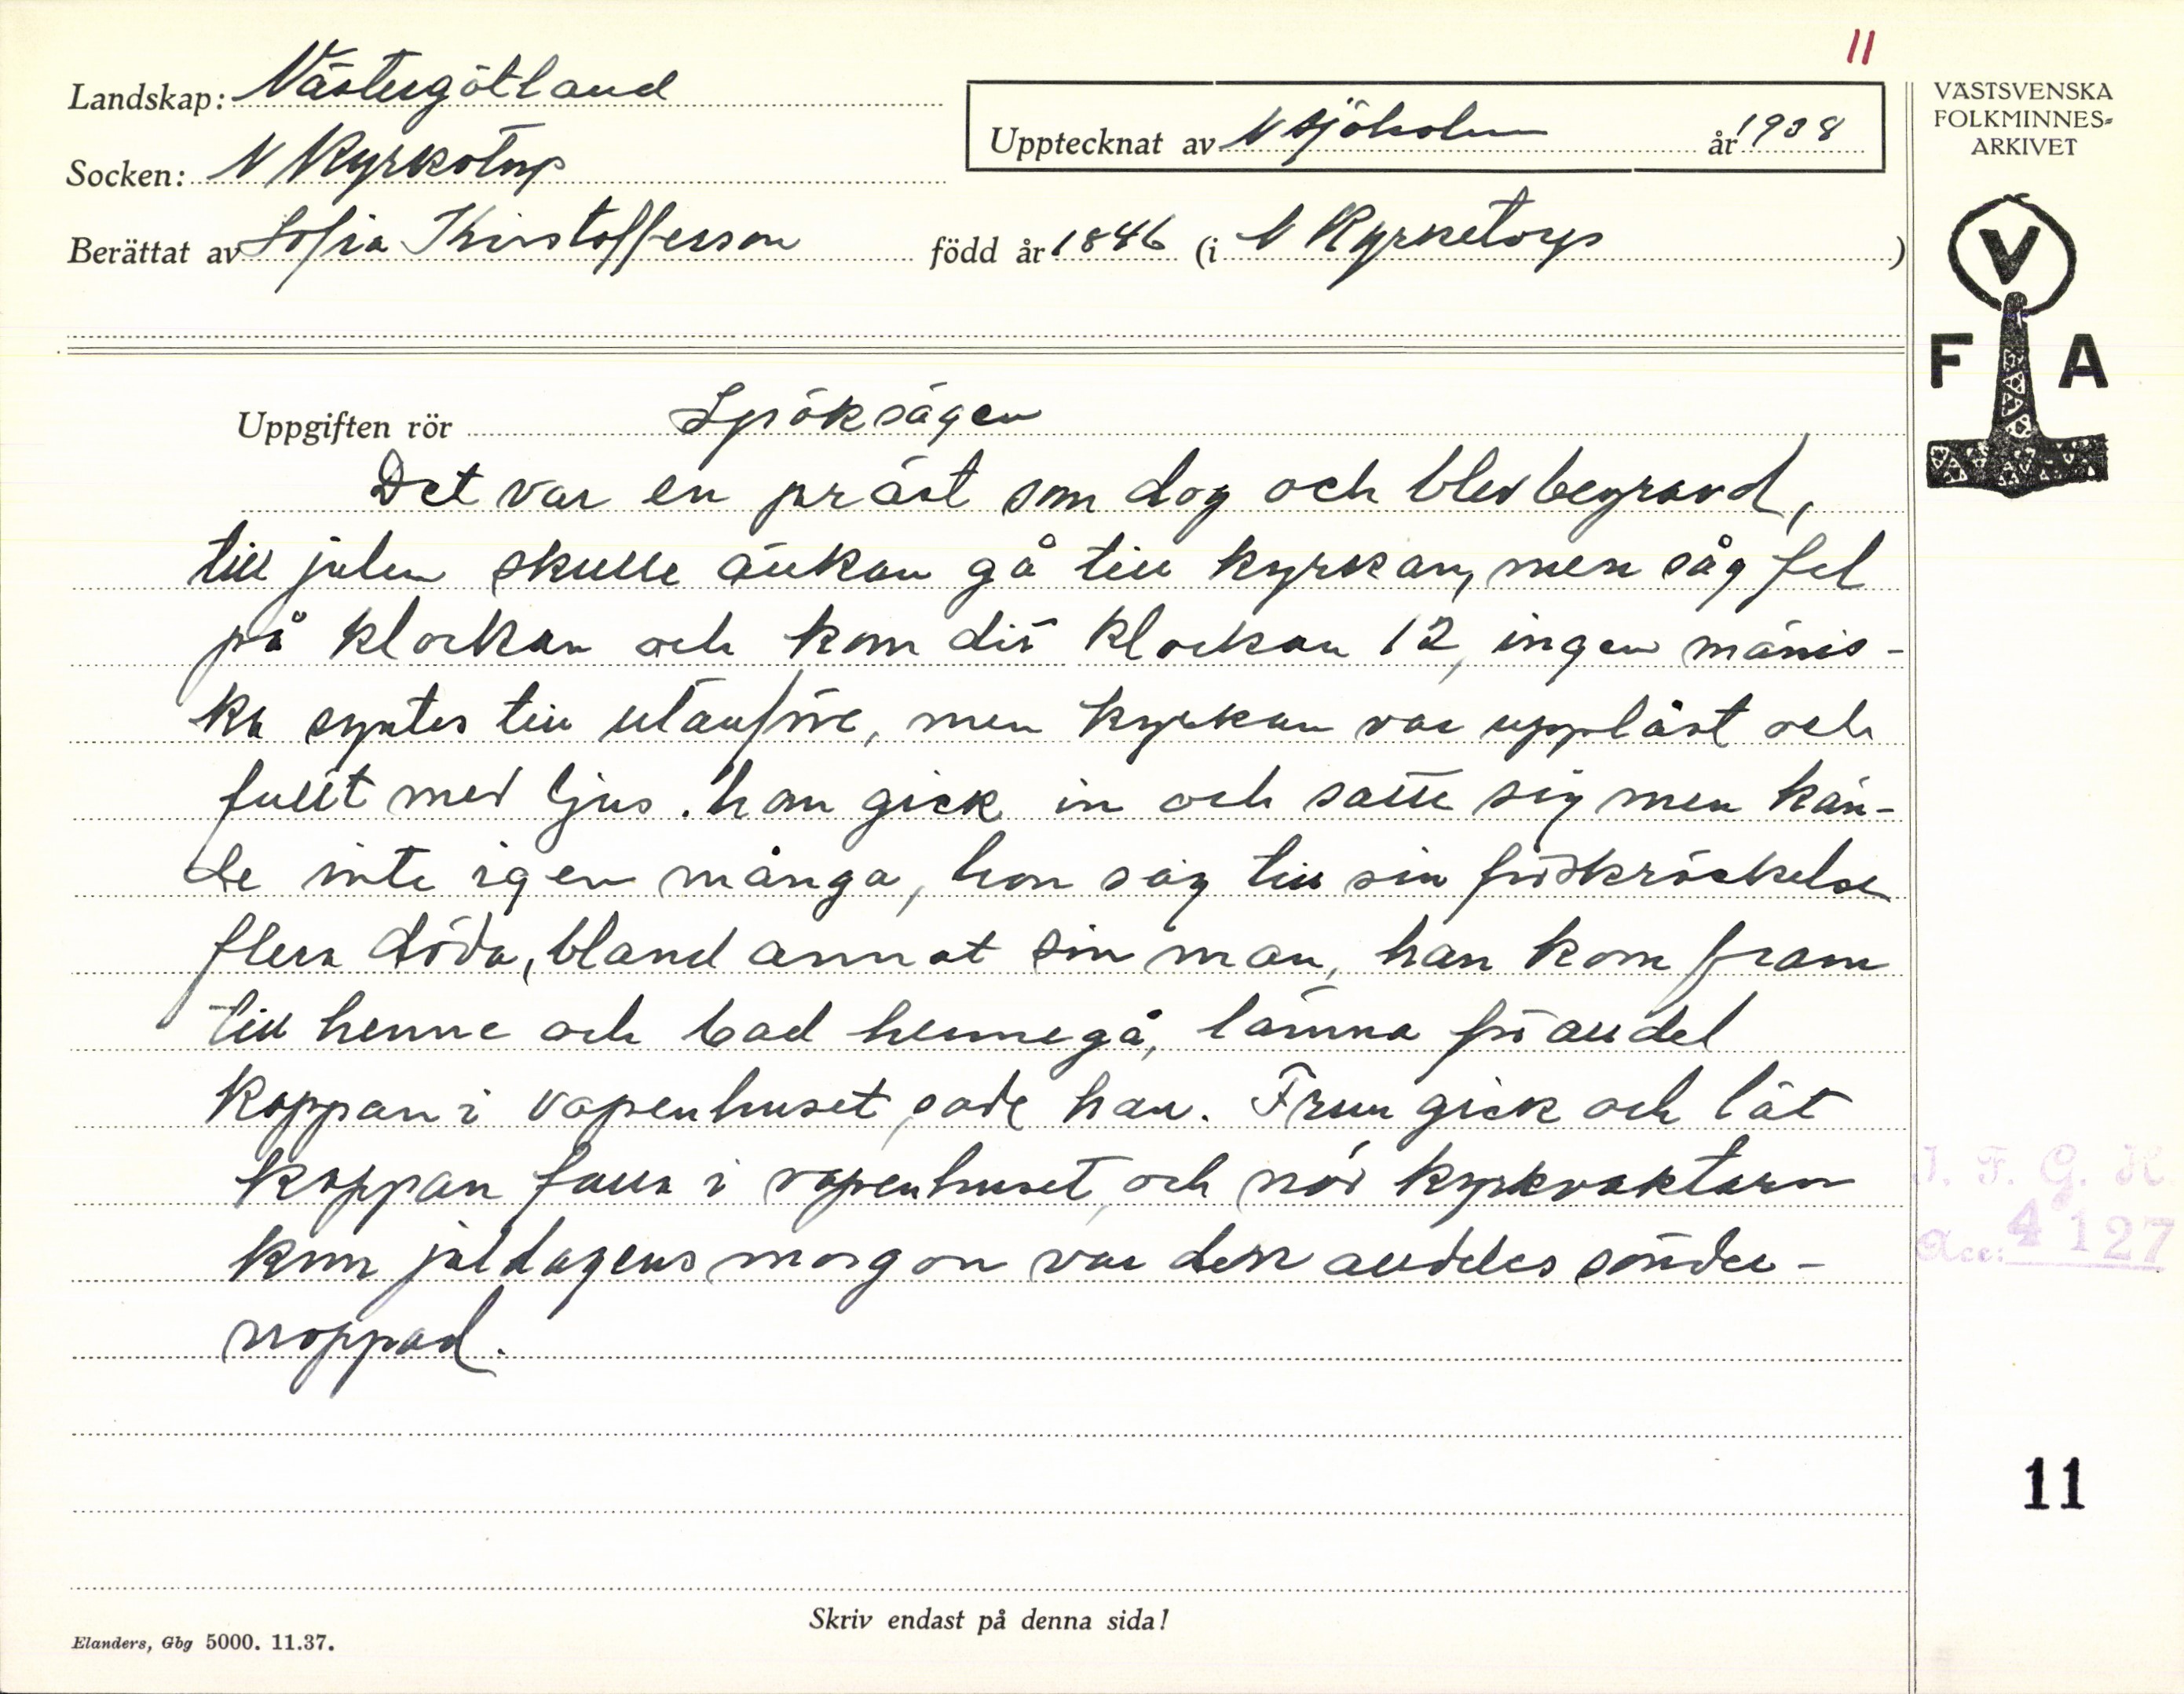 11
Landskap: Västergötland
Socken: N Kyrketorp
Upptecknat av N Sjöholm år 1938
Berättat av Sofia Kristofferson född år 1846 (i N Kyrketorp)
VÄSTSVENSKA
FOLKMINNES-
ARKIVET
V
F A
Uppgiften rör Spöksägen
Det var en präst som dog och blev begravd,
till julen skulle änkan gå till kyrkan, men såg fel
på klockan och kom dit klockan 12, ingen mänis-
ka syntes till utanför, men kyrkan var upplåst och
fullt med ljus. hon gick in och satte sig men kän-
de inte igen många, hon såg till sin förskräckelse
flera döda, bland annat sin man, han kom fram
till henne och bad henne gå, lämna för all del
kappan i vapenhuset sade han. Frun gick och lät
kappan falla i vapenhuset, och när kyrkvaktarn
kom juldagens morgon var den alldeles sönder-
noppad.
I. F. G. H.
Acc: 4127
11
Skriv endast på denna sida!
Elanders, Gbg 5000. 11.37.